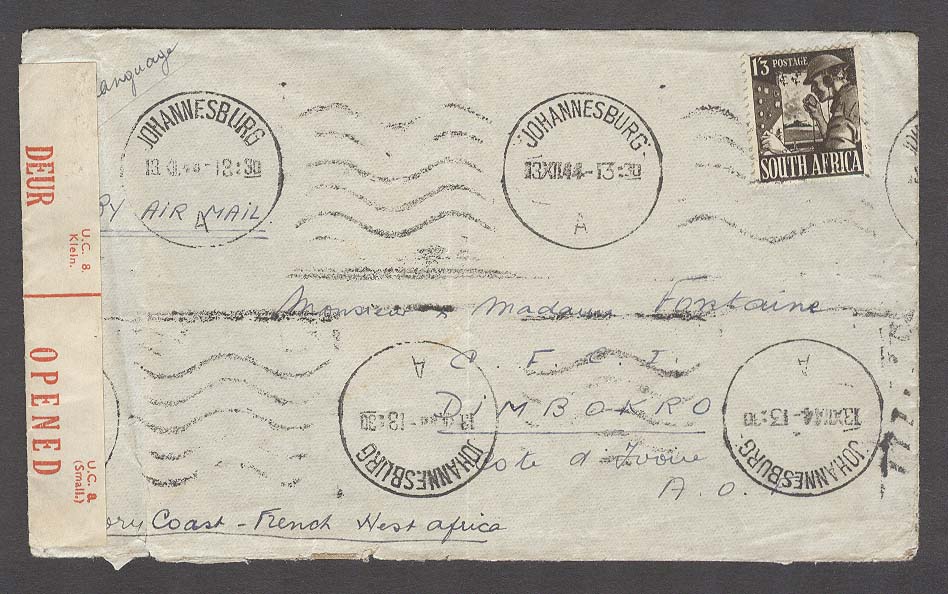 language
1'3 POSTAGE
SOUTH AFRICA
JOHANNESBURG
13 XII 44-13:30
A
JOHANNESBURG
13XII44-13:30
A
BY AIR MAIL
DEUR
U.C. 8.
Klein.
OPENED
U.C. 8.
(Small.)
Monsieur & Madame Fontaine
C. F. C. I.
DIMBOKRO
Côte d'Ivoire
A. O.
Ivory Coast - French West Africa
A
13 XII 44-13:30
JOHANNESBURG
A
13XII44-13:30
JOHANNESBURG